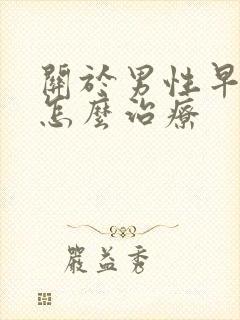 關於男性早
怎麼治療
嚴益秀